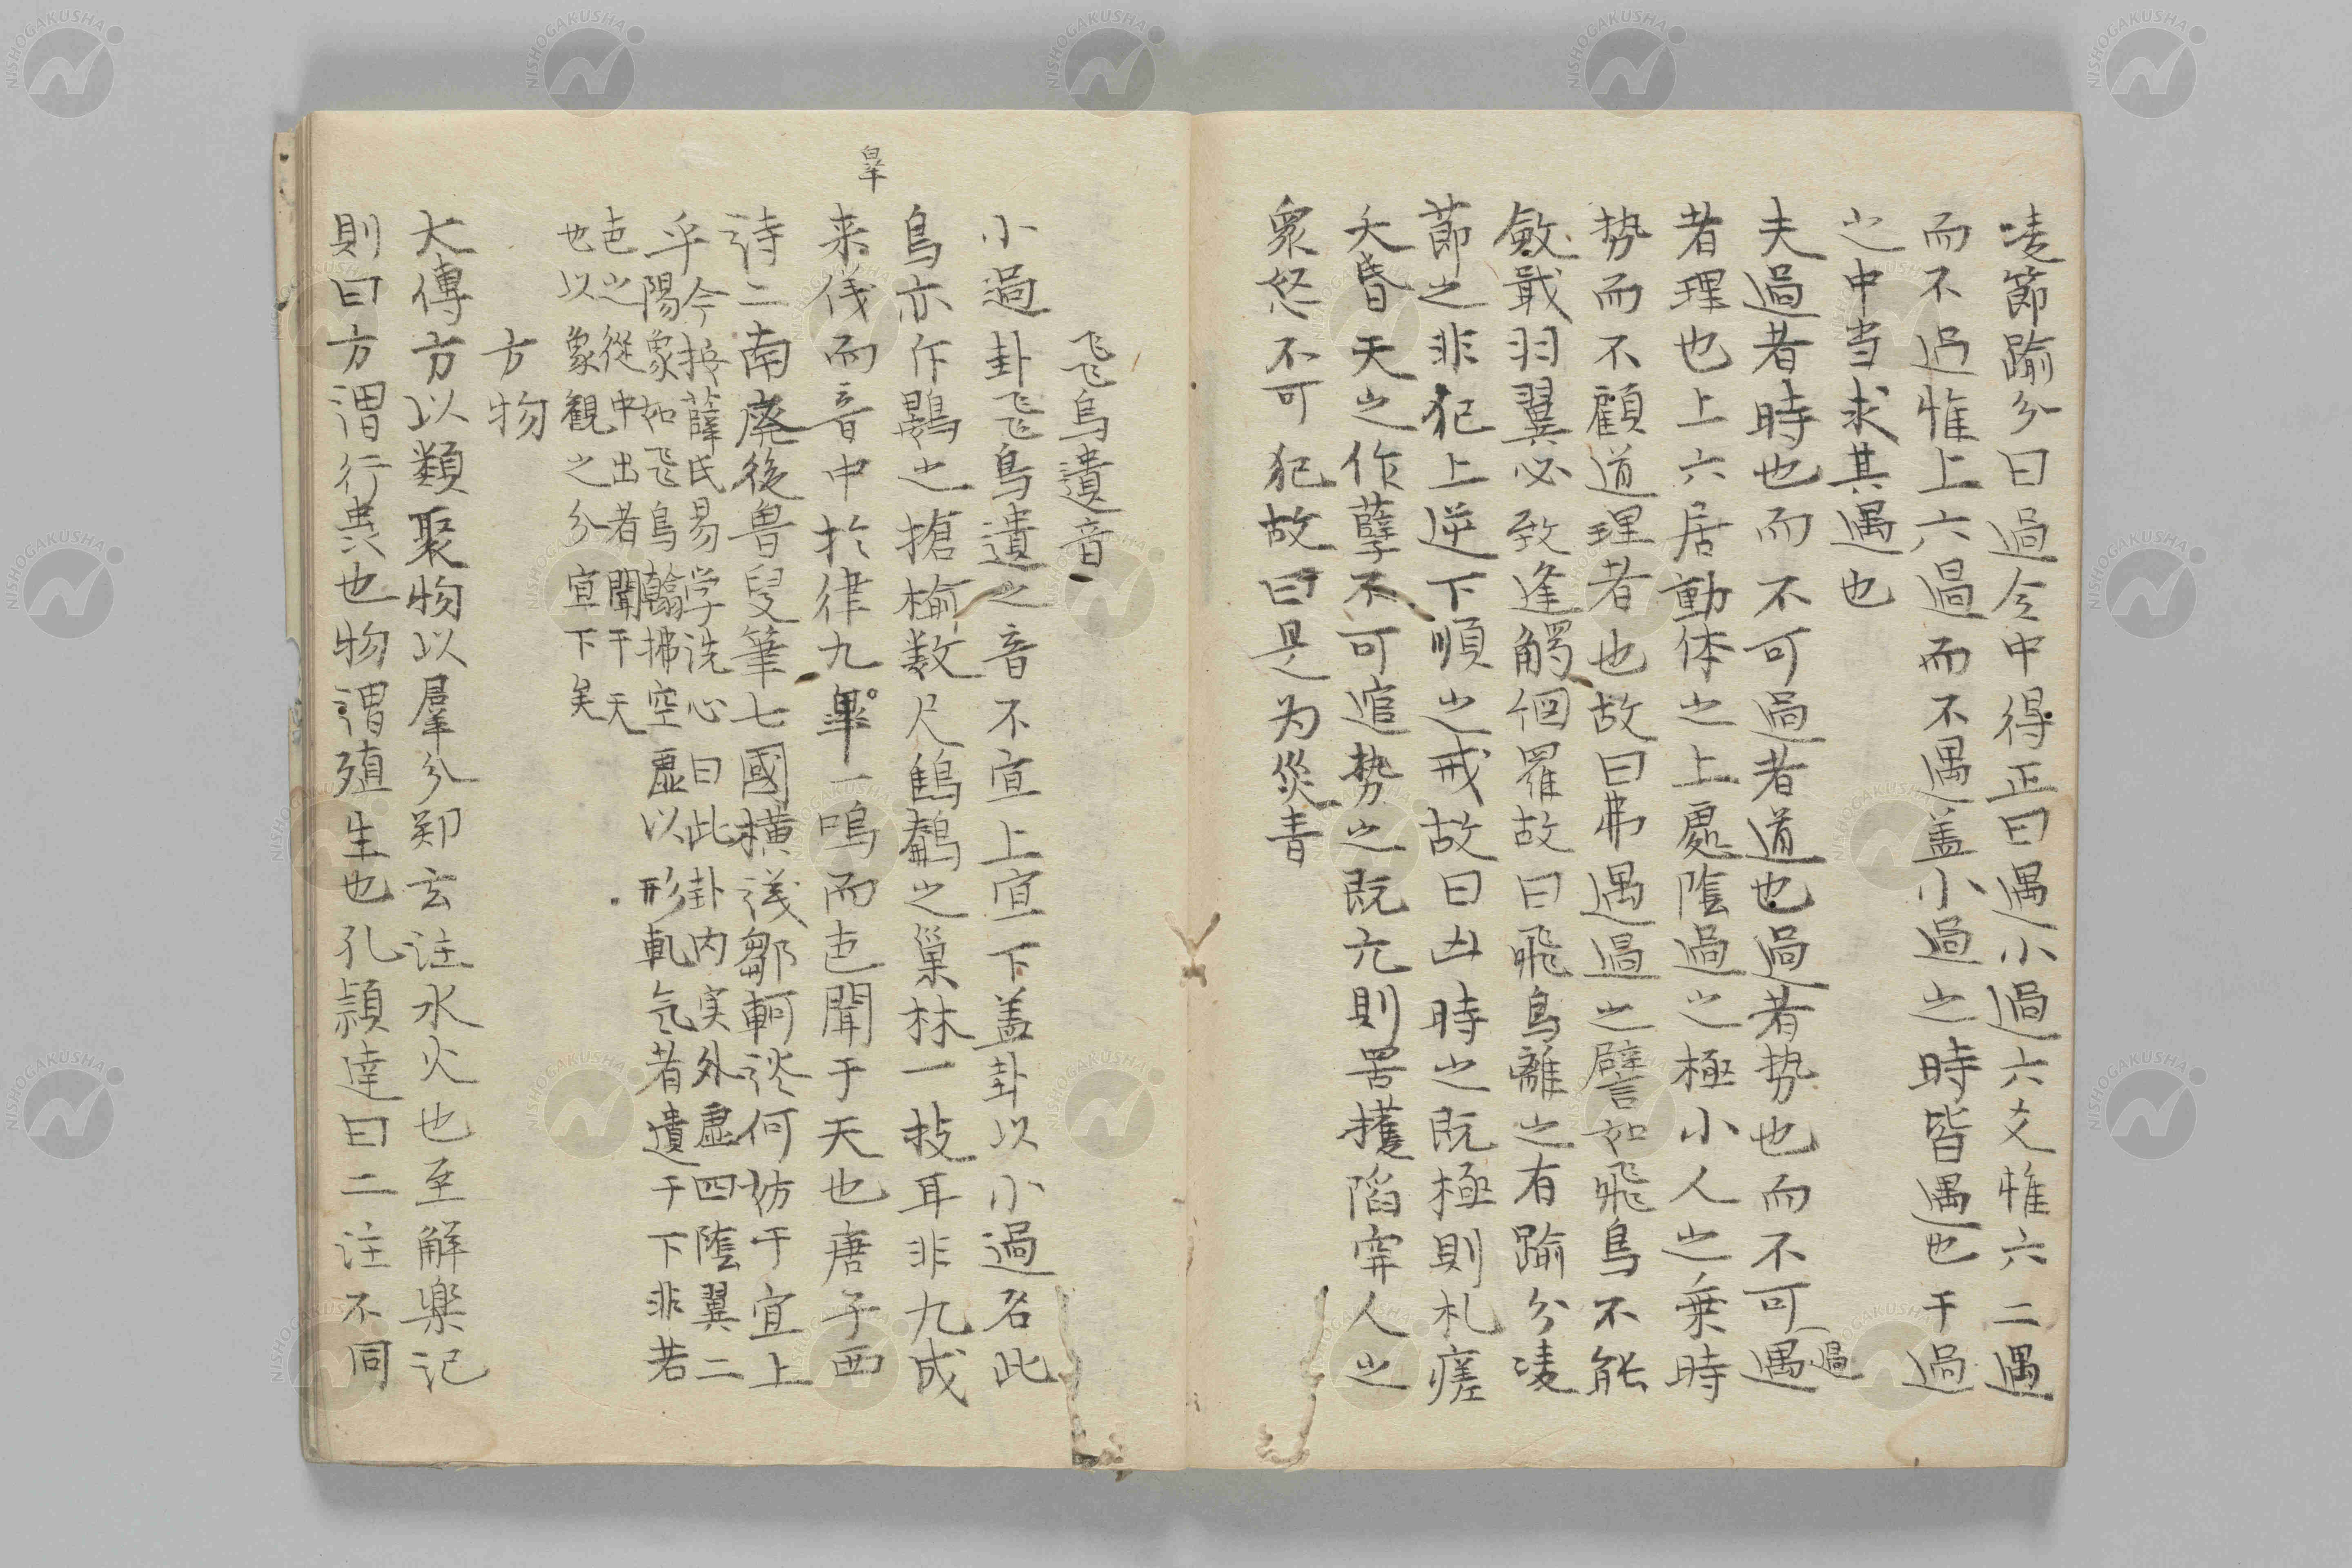 凌節踰分曰過今中得正曰遇小過六爻惟六二遇
而不過惟上六過而不遇盖小過之時皆遇也干過
之中当求其遇也
夫過者時也而不可過者道也過者势也而不可遇
過
者理也上六居動体之上處陰過之極小人之乗時
势而不顧道理者也故曰弗遇過之譬如飛鳥不能
斂戢羽翼必致逢觸個羅故曰飛鳥離之有踰分凌
節之非犯上逆下順之戒故曰凶時之既極則札瘥
夭昏天之作孽不可逭势之既亢則罟擭陷穽人之
衆怒不可犯故曰是为災眚
飞鳥遺音
小過卦飞鳥遺之音不宜上宜下盖卦以小過名此
鳥亦作鷃之搶榆数尺鷦鷯之巢林一枝耳非九成
来儀而音中於律九皐一鳴而声聞于天也唐子西
皐
詩二南廃後魯叟筆七國横議鄒軻談何妨于宜上
乎
今按薛氏易学洗心曰此卦内实外虚四陰翼二
陽象如飞鳥翰拂空虚以形軋气者遺于下非若
声之從中出者聞干天
也以象観之分宜下矣
方物
大傳方以類聚物以羣分郑玄注水火也至解樂記
則曰方謂行典也物謂殖生也孔頴達曰二注不同
NISHOGAKUSHA